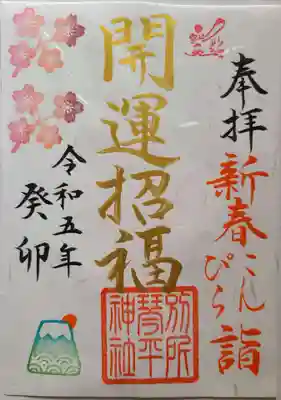 奉拝
新春こんぴら詣
開運招福
令和五年
癸卯
別所
琴平
神社